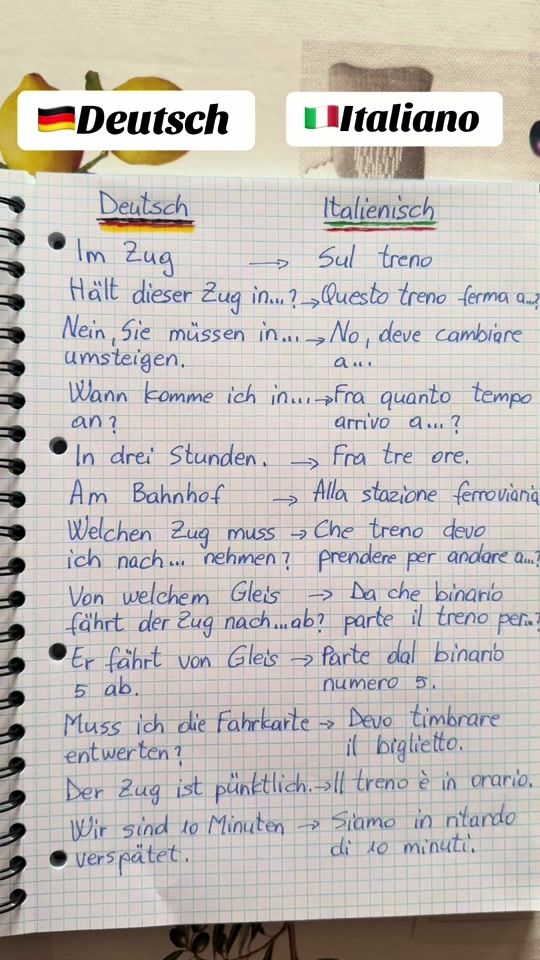 🇩🇪Deutsch 🇮🇹Italiano
Deutsch Italienisch
Im Zug → Sul treno
Hält dieser Zug in...? → Questo treno ferma a...?
Nein, Sie müssen in... → No, deve cambiare
umsteigen. a...
Wann komme ich in... → Fra quanto tempo
an? arrivo a...?
In drei Stunden. → Fra tre ore.
Am Bahnhof → Alla stazione ferroviaria
Welchen Zug muss → Che treno devo
ich nach... nehmen? prendere per andare a...?
Von welchem Gleis → Da che binario
fährt der Zug nach...ab? parte il treno per...?
Er fährt von Gleis → Parte dal binario
5 ab. numero 5.
Muss ich die Fahrkarte → Devo timbrare
entwerten? il biglietto.
Der Zug ist pünktlich. → Il treno è in orario.
Wir sind 10 Minuten → Siamo in ritardo
verspätet. di 10 minuti.